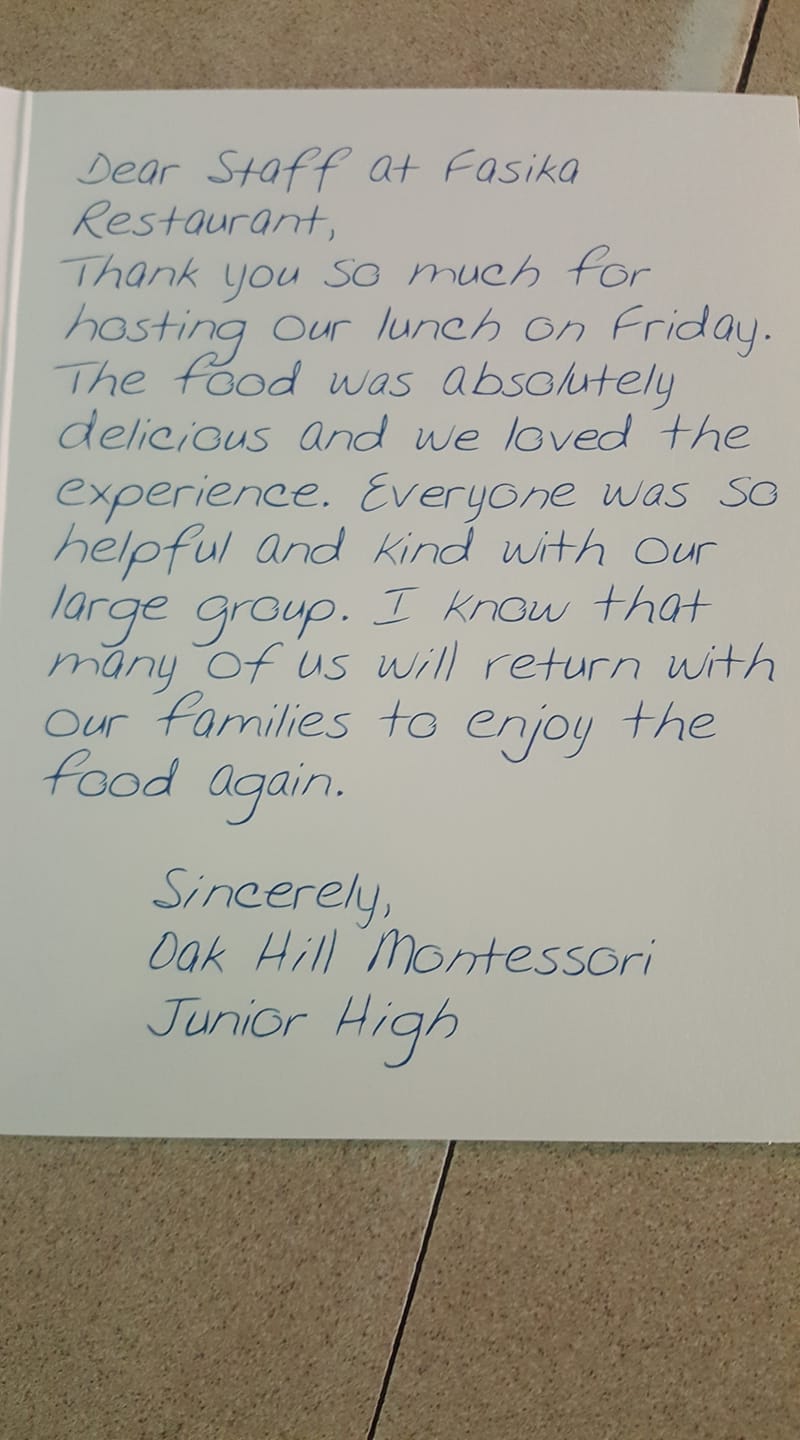 Dear Staff at Fasika
Restaurant,
Thank you so much for
hosting our lunch on Friday.
The food was absolutely
delicious and we loved the
experience. Everyone was so
helpful and kind with our
large group. I know that
many of us will return with
our families to enjoy the
food again.
Sincerely,
Oak Hill Montessori
Junior High